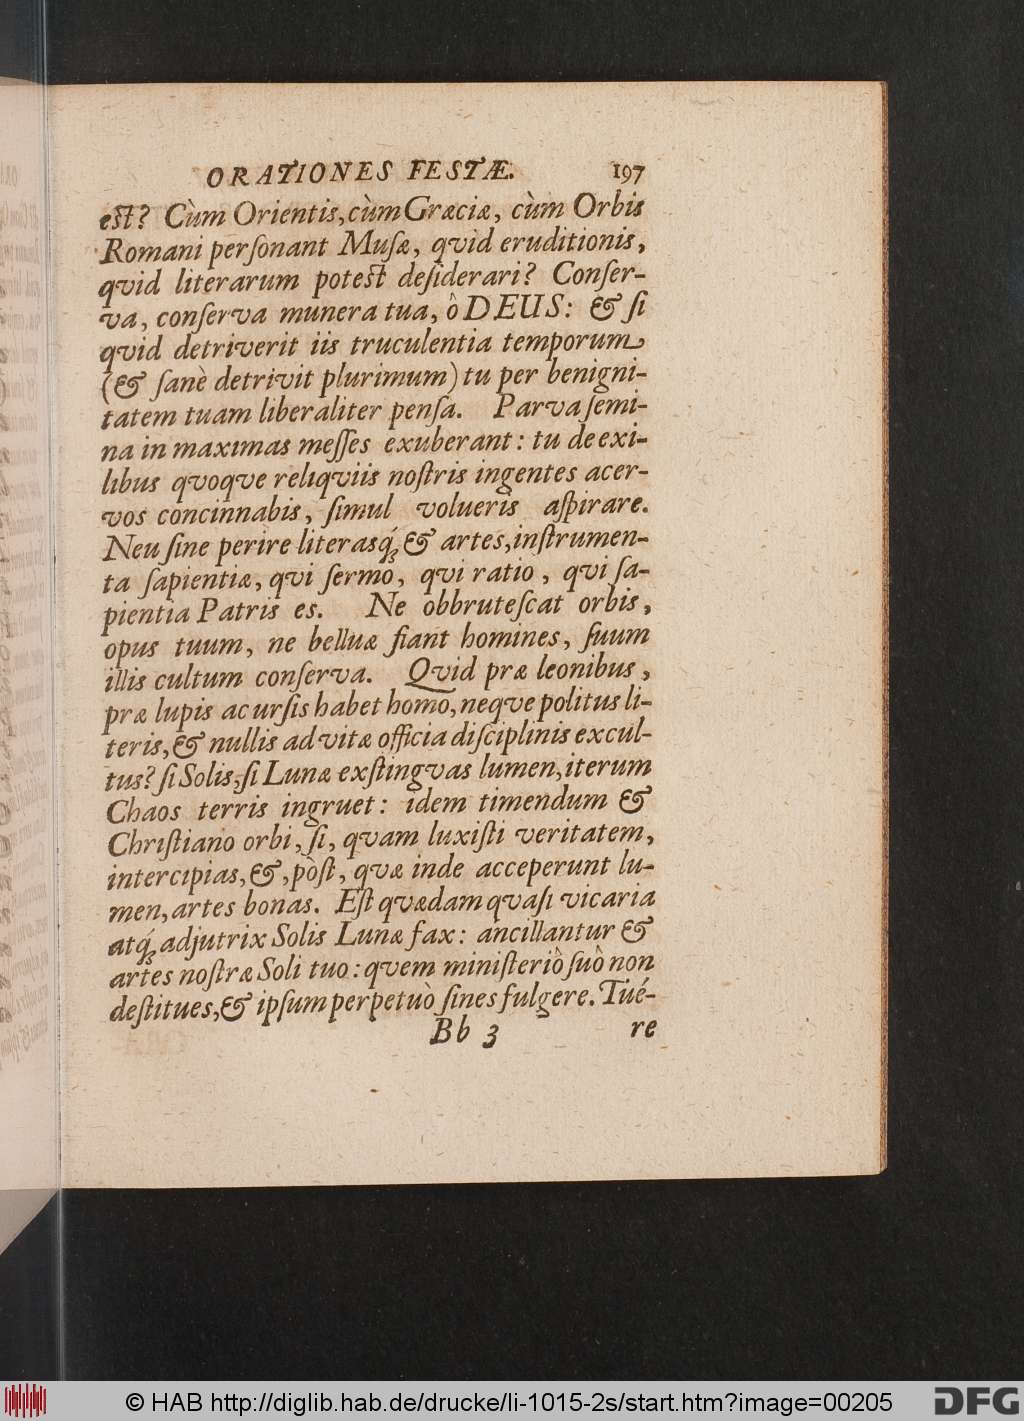 ORATIONES FESTÆ. 197
est? Cùm Orientis, cùm Græciæ, cùm Orbis
Romani perſonant Muſæ, qvid eruditionis,
qvid literarum potest deſiderari? Conſer-
va, conſerva munera tua, ô DEUS: & ſi
qvid detriverit iis truculentia temporum
(& ſanè detrivit plurimum) tu per benigni-
tatem tuam liberaliter penſa. Parva ſemi-
na in maximas meſſes exuberant: tu de exi-
libus qvoqve reliqviis noſtris ingentes acer-
vos concinnabis, ſimul volueris aſpirare.
Neu ſine perire literasq́ꝫ & artes, inſtrumen-
ta ſapientiæ, qvi ſermo, qvi ratio, qvi ſa-
pientia Patris es. Ne obbruteſcat orbis,
opus tuum, ne belluæ fiant homines, ſuum
illis cultum conſerva. Qvid præ leonibus,
præ lupis ac urſis habet homo, neqve politus li-
teris, & nullis ad vitæ officia diſciplinis excul-
tus? ſi Solis, ſi Lunæ exſtingvas lumen, iterum
Chaos terris ingruet: idem timendum &
Chriſtiano orbi, ſi, qvam luxiſti veritatem,
intercipias, &, pòſt, qvæ inde acceperunt lu-
men, artes bonas. Eſt qvædam qvaſi vicaria
atq́ꝫ adjutrix Solis Lunæ fax: ancillantur &
artes noſtræ Soli tuo: qvem miniſteriô ſuò non
deſtitues, & ipſum perpetuò ſines fulgere. Tué-
Bb 3 re
© HAB http://diglib.hab.de/drucke/li-1015-2s/start.htm?image=00205 DFG